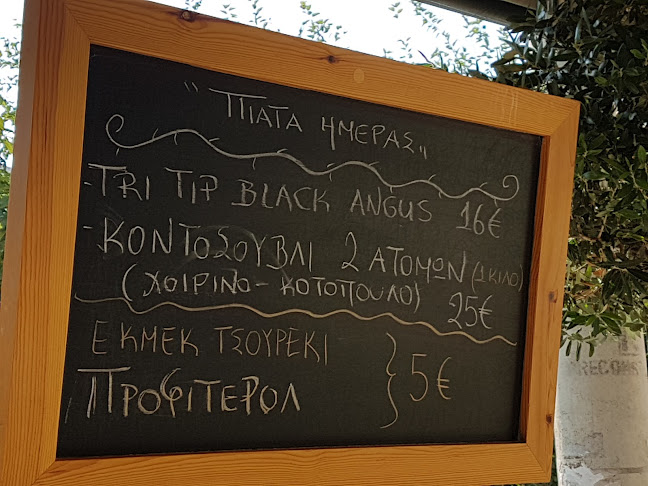 " ΠΙΑΤΑ ΗΜΕΡΑΣ "
- TRI TIP BLACK ANGUS 16€
- ΚΟΝΤΟΣΟΥΒΛΙ 2 ΑΤΟΜΩΝ (1 ΚΙΛΟ)
(ΧΟΙΡΙΝΟ - ΚΟΤΟΠΟΥΛΟ) 25€
ΕΚΜΕΚ ΤΣΟΥΡΕΚΙ
ΠΡΟΦΙΤΕΡΟΛ } 5€
RECONS